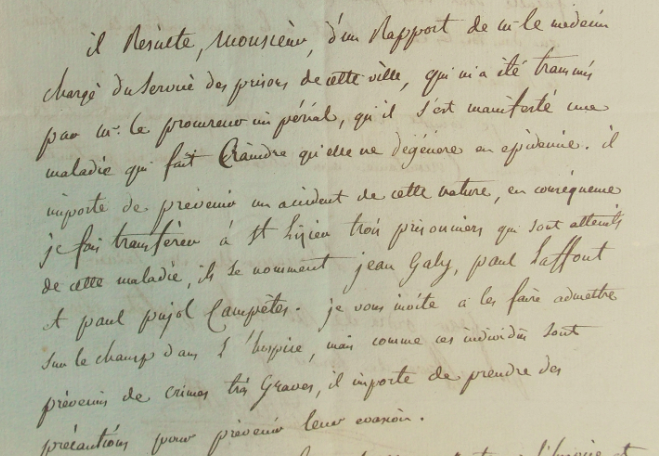 il Résulte, Monsieur, d'un Rapport de mr le medecin
chargé du service des prisons de cette ville, qui m'a été transmis
par mr. le procureur impérial, qu'il s'est manifesté une
maladie qui fait Craindre qu'elle ne dégénère en epidemie. il
importe de prévenir un accident de cette nature, en conséquence
je fais transférer à St Lizier trois prisonniers qui sont atteints
de cette maladie, ils se nomment jean Galy, paul Laffont
et paul pujol Campètes. je vous invite à les faire admettre
sur le champ dans l'hospice, mais comme ces individus sont
prévenus de crimes très Graves, il importe de prendre des
précautions pour prévenir leur evasion.